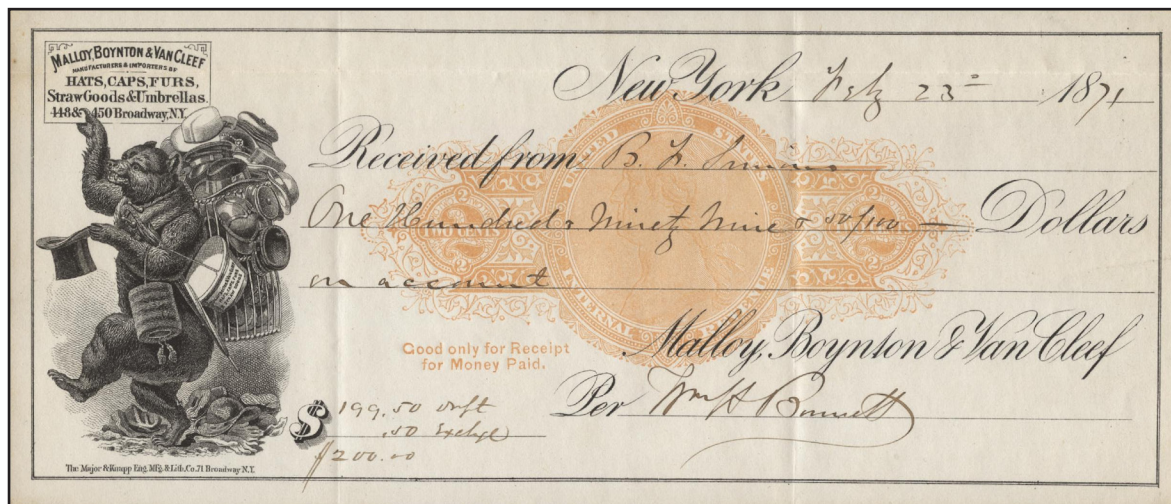 MALLOY, BOYNTON & VAN CLEEF
MANUFACTURERS & IMPORTERS OF
HATS, CAPS, FURS,
Straw Goods & Umbrellas.
448 & 450 Broadway, N.Y.
New York Feb 23 1871
Received from B. F.
One Hundred & Ninety Nine & 50/100 — Dollars
on account
UNITED STATES
INTERNAL REVENUE
2
2
Good only for Receipt
for Money Paid.
Malloy, Boynton & Van Cleef
Per Wm H Burnett
$ 199.50 drft
.50 Exchge
$200.00
The Major & Knapp Eng. Mfg. & Lith. Co. 71 Broadway N.Y.